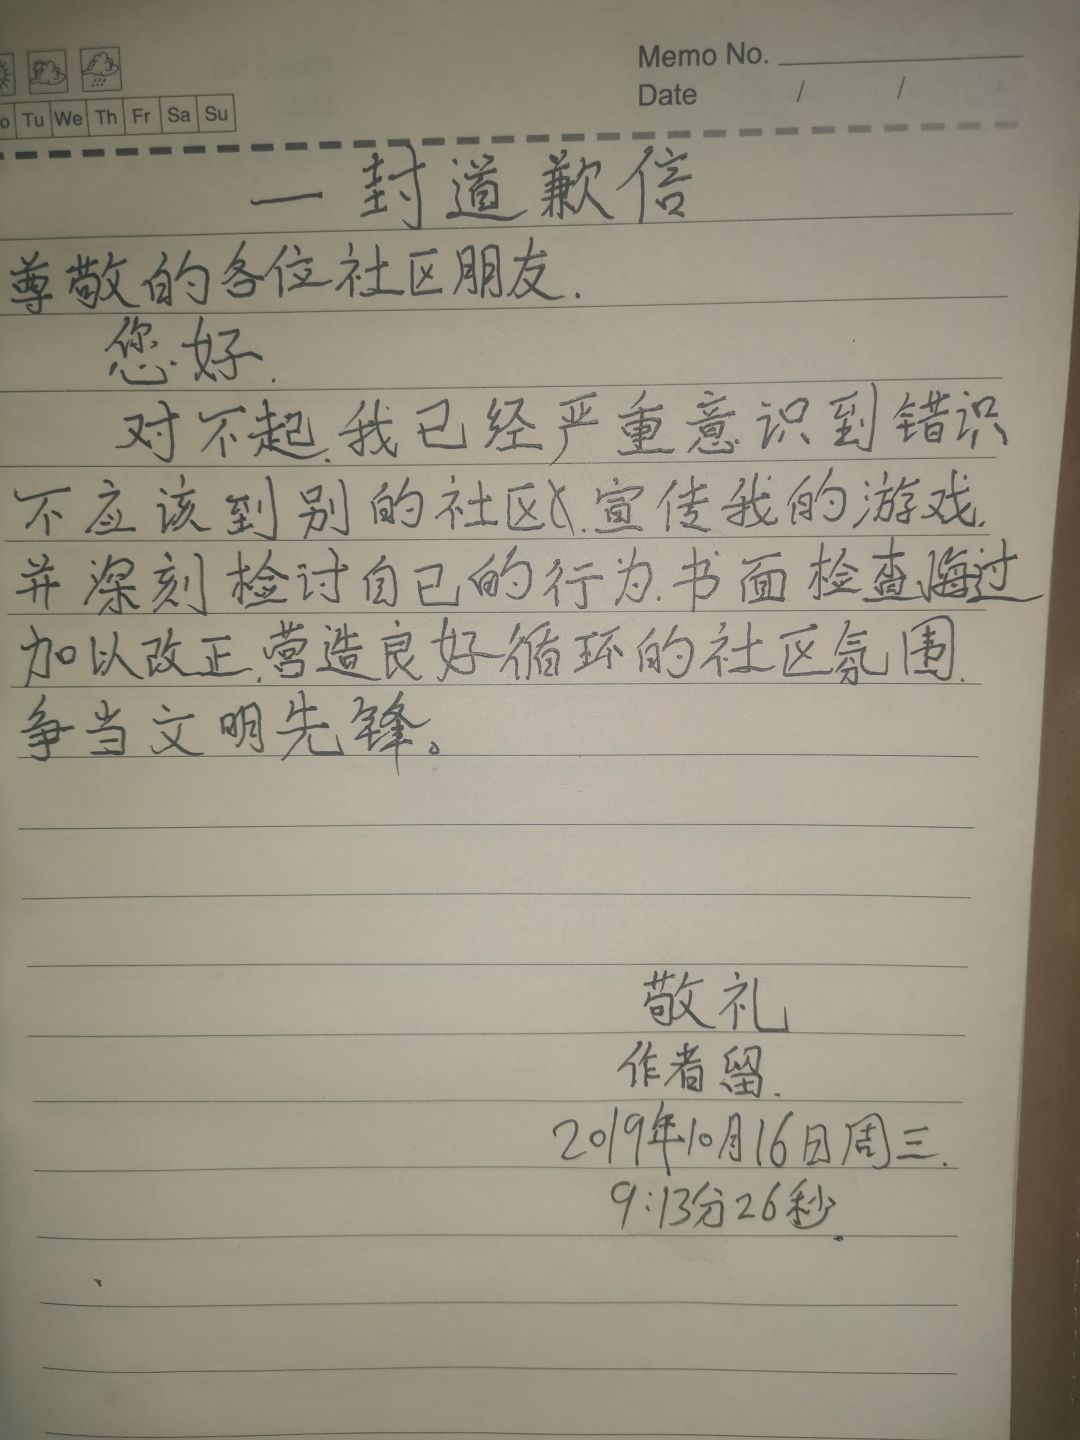 Memo No.
o Tu We Th Fr Sa Su
Date / /
一封道歉信
尊敬的各位社区朋友.
您好.
对不起.我已经严重意识到错识
不应该到别的社区.宣传我的游戏.
并深刻检讨自己的行为.书面检查悔过
加以改正.营造良好循环的社区氛围.
争当文明先锋。
敬礼
作者留.
2019年10月16日周三.
9:13分26秒.